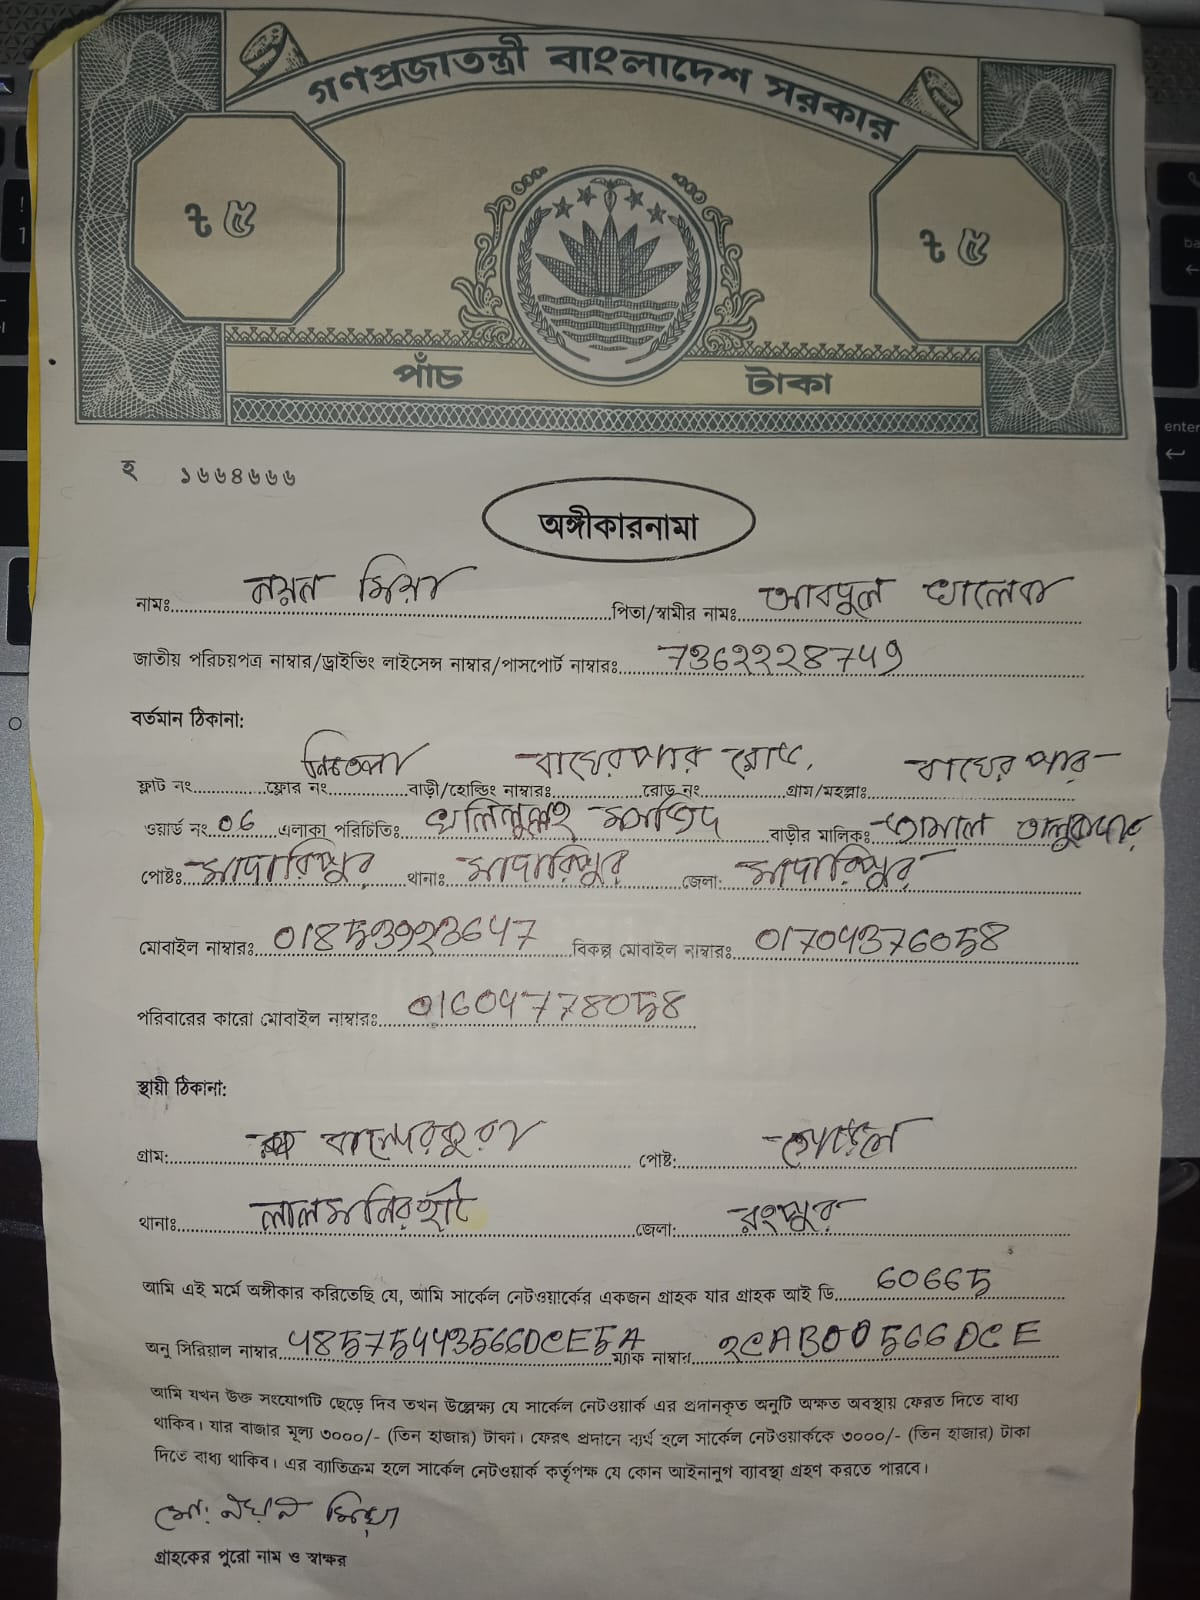 গণপ্রজাতন্ত্রী বাংলাদেশ সরকার
৳ ৫ ৳ ৫
পাঁচ টাকা
হ ১৬৬৪৬৬৬
অঙ্গীকারনামা
নামঃ নয়ন মিয়া পিতা/স্বামীর নামঃ আবদুল খালেক
জাতীয় পরিচয়পত্র নাম্বার/ড্রাইভিং লাইসেন্স নাম্বার/পাসপোর্ট নাম্বারঃ
বর্তমান ঠিকানা:
ফ্লাট নং ফ্লোর নং নিচতলা বাড়ী/হোল্ডিং নাম্বারঃ রোড নং গ্রাম/মহল্লাঃ
ওয়ার্ড নং 06 এলাকা পরিচিতিঃ বাড়ীর মালিকঃ তামাল তালুকদার
পোষ্টঃ মাদারিপুর থানাঃ মাদারিপুর জেলা: মাদারিপুর
মোবাইল নাম্বারঃ বিকল্প মোবাইল নাম্বারঃ 01704376058
পরিবারের কারো মোবাইল নাম্বারঃ 01604778058
স্থায়ী ঠিকানা:
গ্রাম: পোষ্ট:
থানাঃ লালমনিরহাট জেলা: রংপুর
আমি এই মর্মে অঙ্গীকার করিতেছি যে, আমি সার্কেল নেটওয়ার্কের একজন গ্রাহক যার গ্রাহক আই ডি 60665
অনু সিরিয়াল নাম্বার 485754443566DCE5A ম্যাক নাম্বার ২CAB00566DCE
আমি যখন উক্ত সংযোগটি ছেড়ে দিব তখন উল্লেক্ষ্য যে সার্কেল নেটওয়ার্ক এর প্রদানকৃত অনুটি অক্ষত অবস্থায় ফেরত দিতে বাধ্য
থাকিব। যার বাজার মূল্য ৩০০০/- (তিন হাজার) টাকা। ফেরৎ প্রদানে ব্যর্থ হলে সার্কেল নেটওয়ার্ককে ৩০০০/- (তিন হাজার) টাকা
দিতে বাধ্য থাকিব। এর ব্যাতিক্রম হলে সার্কেল নেটওয়ার্ক কর্তৃপক্ষ যে কোন আইনানুগ ব্যাবস্থা গ্রহণ করতে পারবে।
মো: নয়ন মিয়া
গ্রাহকের পুরো নাম ও স্বাক্ষর